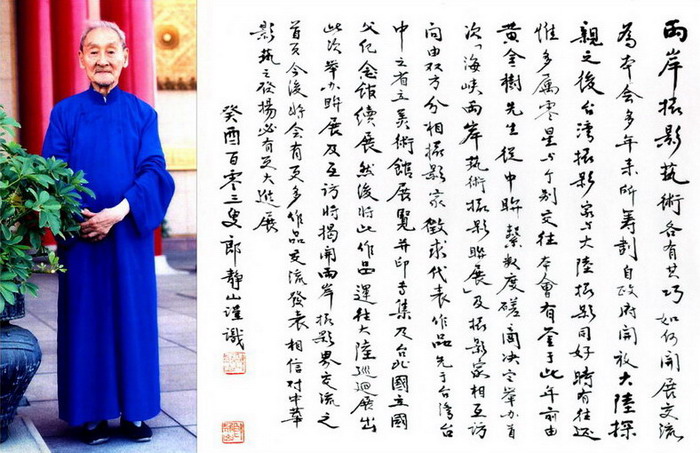 兩岸攝影藝術各有其巧如何開展交流
為本會多年來所籌劃自政府開放大陸探
親之後台灣攝影家與大陸攝影同好時有往返
惟多屬零星与个别交往本會有鉴于此年前由
黃金樹先生從中聯繫数度磋商决定举办首
次「海峽兩岸藝術攝影聯展」及攝影家相互訪
问由双方分相攝影家徵求代表作品先于台灣台
中之省立美術館展覽并印専集及台北國立國
父紀念館續展然後將此作品運往大陸巡迴展出
此次举办聯展及互訪時揭開兩岸攝影界交流之
首頁今後将会有更多作品交流發表相信对中華
影藝之發揚必有更大進展
癸酉百零三叟郎靜山謹識